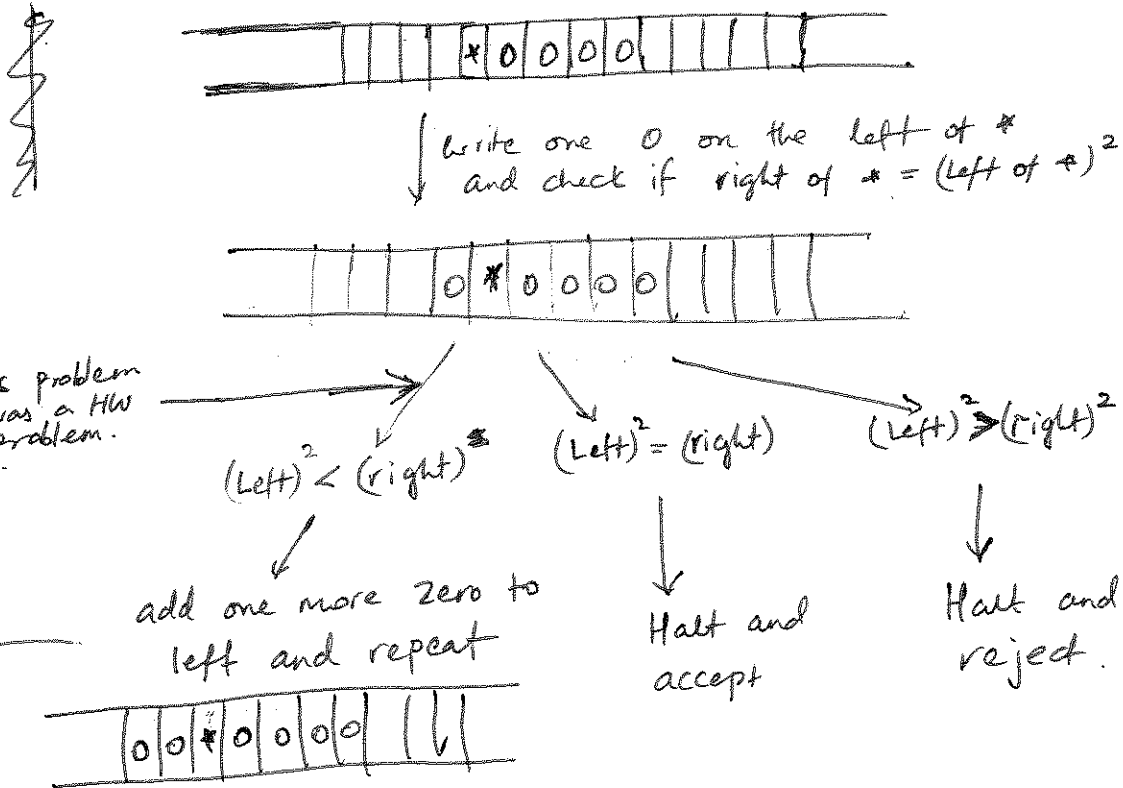 * 0 0 0 0
write one 0 on the left of *
and check if right of * = (left of *)²
0 * 0 0 0 0
problem
was a HW
problem.
(Left)² < (right)
(Left)² = (right)
(Left)² > (right)²
add one more zero to
left and repeat
Halt and
accept
Halt and
reject.
0 0 * 0 0 0 0